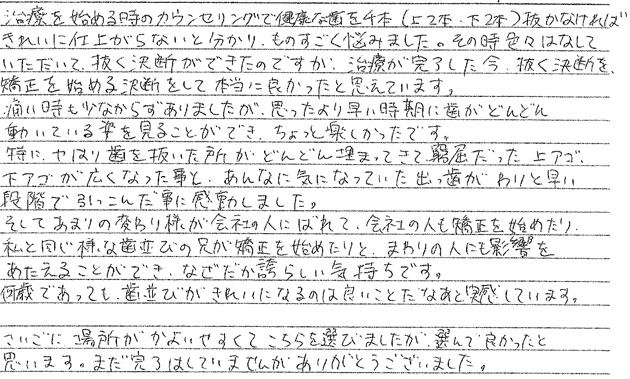 治療を始める時のカウンセリングで健康な歯を4本(上2本・下2本)抜かなければ
きれいに仕上がらないと分かり、ものすごく悩みました。その時色々はなして
いただいて、抜く決断ができたのですが、治療が完了した今、抜く決断を、
矯正を始める決断をして本当に良かったと思えています。
痛い時も少なからずありましたが、思ったより早い時期に歯がどんどん
動いている姿を見ることができ、ちょっと楽しかったです。
特に、やはり歯を抜いた所がどんどん埋まってきて、窮屈だった上アゴ、
下アゴが広くなった事と、あんなに気になっていた出っ歯がわりと早い
段階で引っこんだ事に感動しました。
そしてあまりの変わり様が会社の人にばれて、会社の人も矯正を始めたり、
私と同じ様な歯並びの兄が矯正を始めたりと、まわりの人にも影響を
あたえることができ、なぜだか誇らしい気持ちです。
何歳であっても、歯並びがきれいになるのは良いことだなあと実感しています。
さいごに、場所がかよいやすくてこちらを選びましたが、選んで良かったと
思います。まだ完了はしていませんがありがとうございました。